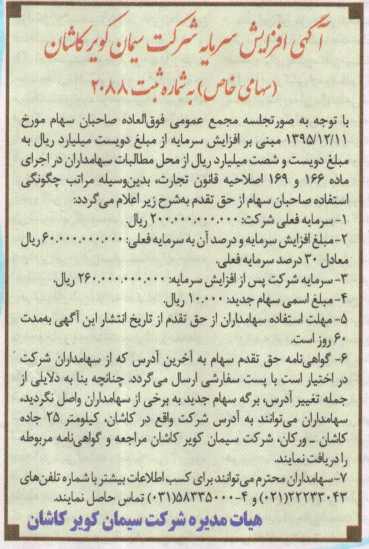 آگهی افزایش سرمایه شرکت سیمان کویر کاشان
(سهامی خاص) به شماره ثبت ۲۰۸۸
با توجه به صورتجلسه مجمع عمومی فوق‌العاده صاحبان سهام مورخ
۱۳۹۵/۱۲/۱۱ مبنی بر افزایش سرمایه از مبلغ دویست میلیارد ریال به
مبلغ دویست و شصت میلیارد ریال از محل مطالبات سهامداران در اجرای
ماده ۱۶۶ و ۱۶۹ اصلاحیه قانون تجارت، بدین‌وسیله مراتب چگونگی
استفاده صاحبان سهام از حق تقدم به‌شرح زیر اعلام می‌گردد:
۱- سرمایه فعلی شرکت: ۲۰۰.۰۰۰.۰۰۰.۰۰۰ ریال.
۲- مبلغ افزایش سرمایه و درصد آن به سرمایه فعلی: ۶۰.۰۰۰.۰۰۰.۰۰۰ ریال
معادل ۳۰ درصد سرمایه فعلی.
۳- سرمایه شرکت پس از افزایش سرمایه: ۲۶۰.۰۰۰.۰۰۰.۰۰۰ ریال.
۴- مبلغ اسمی سهام جدید: ۱۰.۰۰۰ ریال.
۵- مهلت استفاده سهامداران از حق تقدم از تاریخ انتشار این آگهی به‌مدت
۶۰ روز است.
۶- گواهی‌نامه حق تقدم سهام به آخرین آدرس که از سهامداران شرکت
در اختیار است با پست سفارشی ارسال می‌گردد. چنانچه بنا به دلایلی از
جمله تغییر آدرس، برگه سهام جدید به برخی از سهامداران واصل نگردید،
سهامداران می‌توانند به آدرس شرکت واقع در کاشان، کیلومتر ۲۵ جاده
کاشان ـ ورکان، شرکت سیمان کویر کاشان مراجعه و گواهی‌نامه مربوطه
را دریافت نمایند.
۷- سهامداران محترم می‌توانند برای کسب اطلاعات بیشتر با شماره تلفن‌های
۲۲۲۳۳۰۴۳(۰۲۱) و ۴-۵۸۳۳۵۰۰۰(۰۳۱) تماس حاصل نمایند.
هیات مدیره شرکت سیمان کویر کاشان